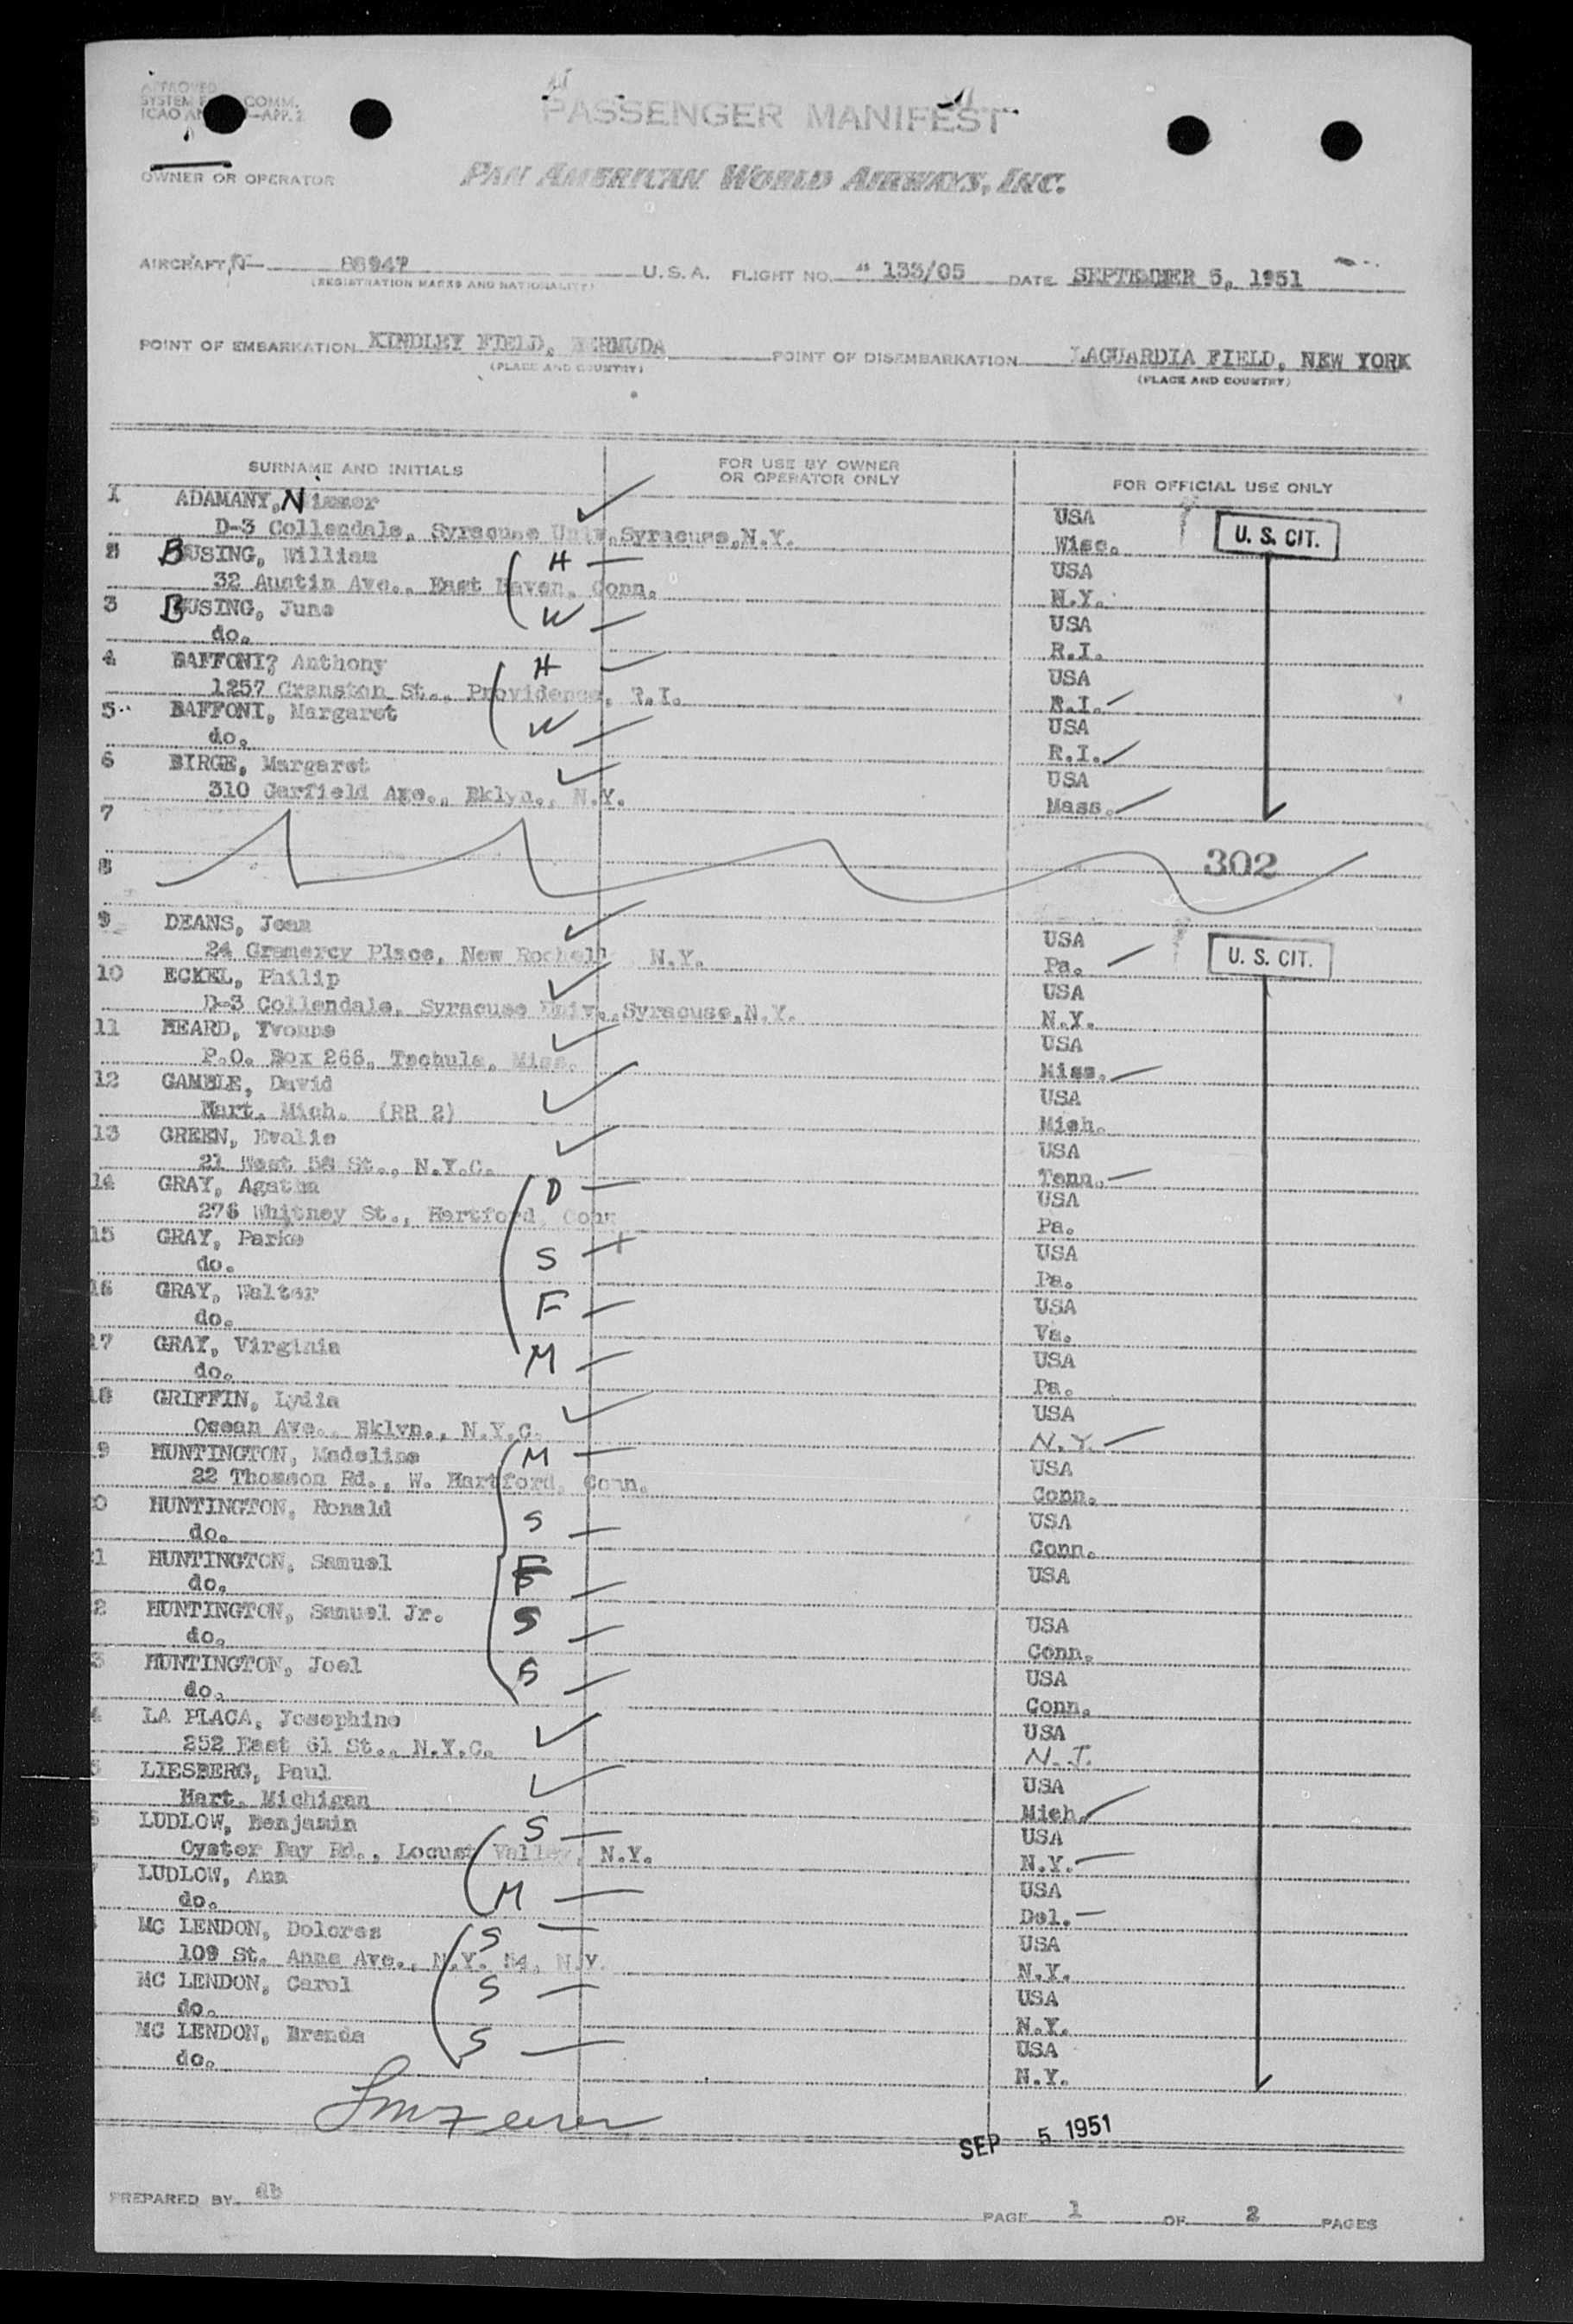 APPROVED
SYSTEM COMM.
ICAO AN —APP. 2
PASSENGER MANIFEST
OWNER OR OPERATOR PAN AMERICAN WORLD AIRWAYS, INC.
AIRCRAFT N— 88947 U.S.A. FLIGHT NO. 133/05 DATE SEPTEMBER 5, 1951
(REGISTRATION MARKS AND NATIONALITY)
POINT OF EMBARKATION KINDLEY FIELD, BERMUDA POINT OF DISEMBARKATION LAGUARDIA FIELD, NEW YORK
(PLACE AND COUNTRY) (PLACE AND COUNTRY)
SURNAME AND INITIALS FOR USE BY OWNER OR OPERATOR ONLY FOR OFFICIAL USE ONLY
1 ADAMANY, Nimmer USA
D-3 Collendale, Syracuse Univ., Syracuse, N.Y. Wisc. U. S. CIT.
2 BUSING, William H USA
32 Austin Ave., East Haven, Conn. N.Y.
3 BUSING, June W USA
do. R.I.
4 BAFFONI? Anthony H USA
1257 Cranston St., Providence, R.I. R.I.
5 BAFFONI, Margaret W USA
do. R.I.
6 BIRGE, Margaret USA
310 Garfield Ape., Bklyn., N.Y. Mass.
7
8 302
9 DEANS, Jean USA
24 Gramercy Place, New Rochell N.Y. Pa. U. S. CIT.
10 ECKEL, Philip USA
D-3 Collendale, Syracuse Univ., Syracuse, N.Y. N.Y.
11 HEARD, Yvonne USA
P.O. Box 266, Tchula, Miss. Miss.
12 GAMBLE, David USA
Hart, Mich. (RR 2) Mich.
13 GREEN, Evalie USA
21 West 58 St., N.Y.C. Tenn.
14 GRAY, Agatha D USA
276 Whitney St., Hartford, Conn Pa.
15 GRAY, Parke S USA
do. Pa.
16 GRAY, Walter F USA
do. Va.
17 GRAY, Virginia M USA
do. Pa.
18 GRIFFIN, Lydia USA
Ocean Ave., Bklyn., N.Y.C. N.Y.
9 HUNTINGTON, Madeline M USA
22 Thomson Rd., W. Hartford, Conn. Conn.
0 HUNTINGTON, Ronald S USA
do. Conn.
1 HUNTINGTON, Samuel F USA
do.
2 HUNTINGTON, Samuel Jr. S USA
do. Conn.
3 HUNTINGTON, Joel S USA
do. Conn.
4 LA PLACA, Josephine USA
252 East 61 St., N.Y.C. N.J.
5 LIESBERG, Paul USA
Hart, Michigan Mich.
6 LUDLOW, Benjamin S USA
Oyster Bay Rd., Locust Valley, N.Y. N.Y.
LUDLOW, Ann M USA
do. Del.
MC LENDON, Dolores S USA
109 St. Anns Ave., N.Y. 54, N.Y. N.Y.
MC LENDON, Carol S USA
do. N.Y.
MC LENDON, Brenda S USA
do. N.Y.
SEP 5 1951
PREPARED BY db
PAGE 1 OF 2 PAGES